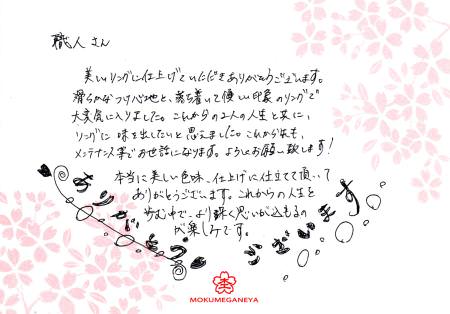 職人さん
美しいリングに仕上げていただきありがとうございます。
滑らかなつけ心地と、落ち着いて優しい印象のリングで
大変気に入りました。これからの2人の人生と共に、
リングに味を出したいと思えました。これからも、
メンテナンス等でお世話になります。よろしくお願い致します!
本当に美しい色味、仕上げに仕立てて頂いて
ありがとうございます。これからの人生を
歩む中で、より深く思いが込もるの
が楽しみです。
ありがとうございます
MOKUMEGANEYA